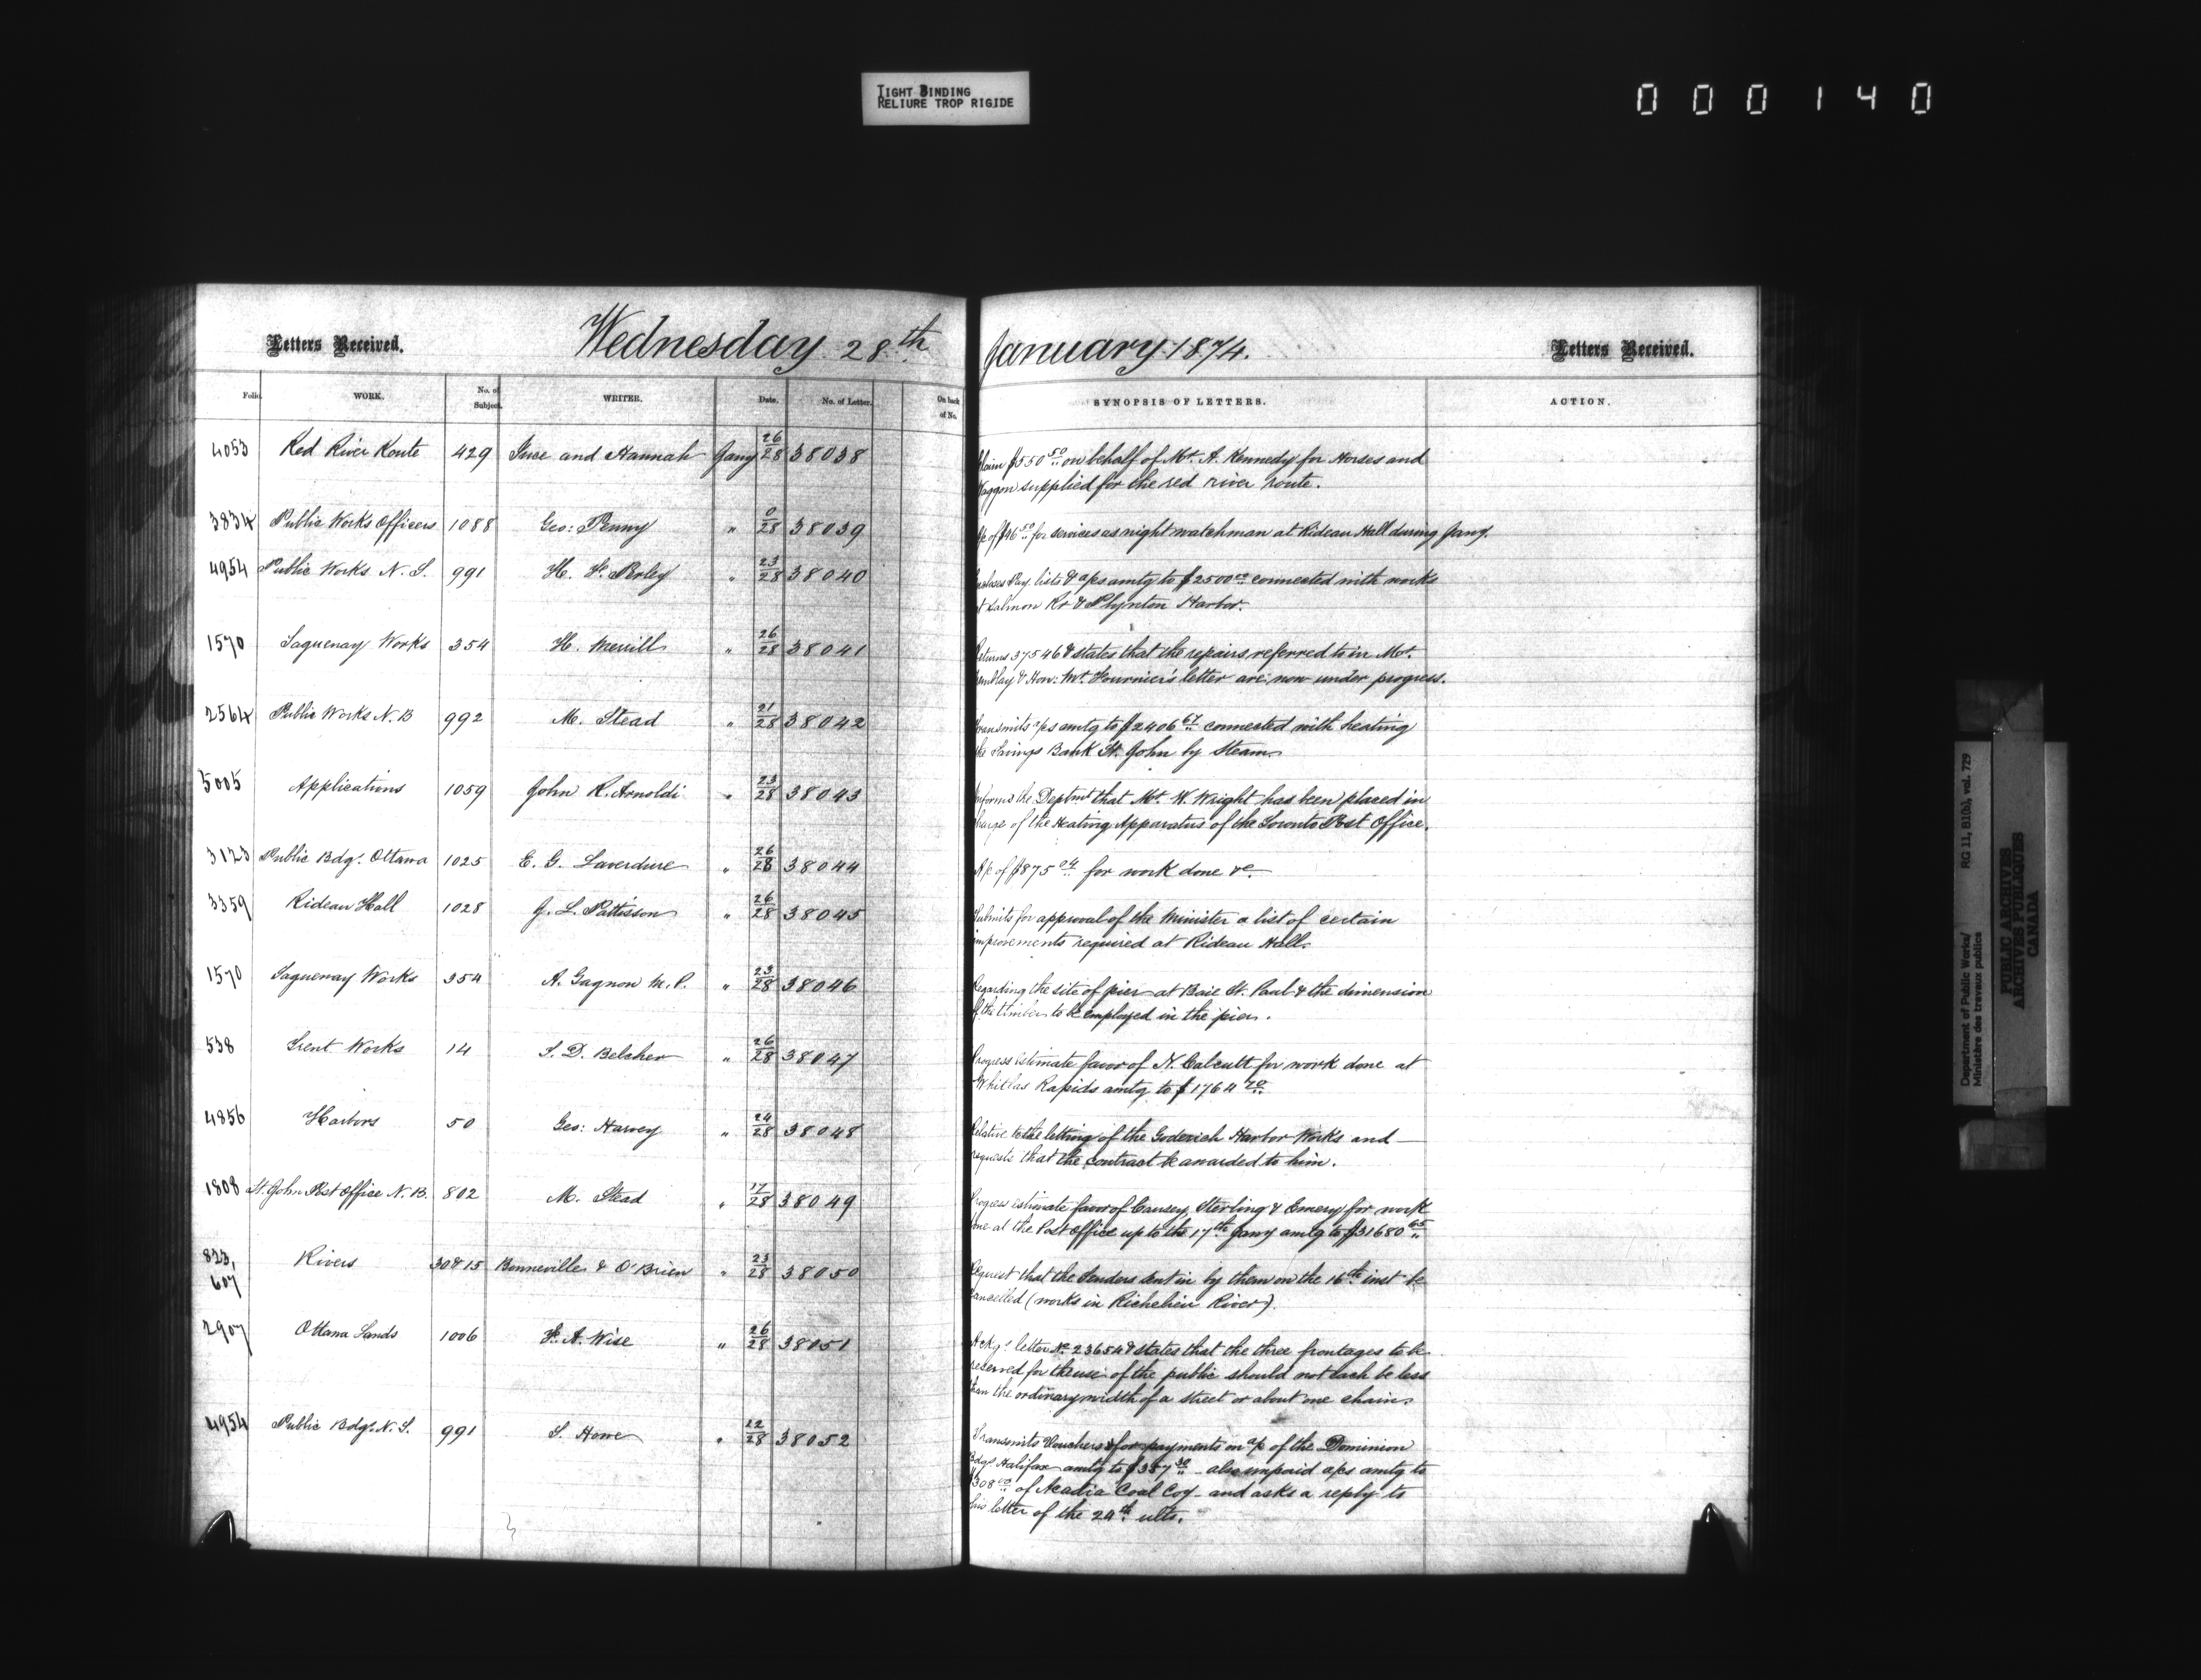 TIGHT BINDING
RELIURE TROP RIGIDE
000140
Letters Received.
Wednesday 28th January 1874.
Letters Received.
Folio. WORK. No. of Subject. WRITER. Date. No. of Letter. On back of No. SYNOPSIS OF LETTERS. ACTION.
4053 Red River Route 429 and Hannah Jany 26/28 38038 Claim $550 50 on behalf of Mr. A. Kennedy for Horses and
Waggon supplied for the red river route.
3834 Public Works Officers 1088 Geo: Penny " 0/28 38039 A/c of $46 50 for services as night watchman at Rideau Hall during Jany.
4954 Public Works N.S. 991 H. F. Perley " 23/28 38040 Encloses Pay lists & a/cs amtg to $2500 00 connected with works
at Salmon Rr & Plynton Harbor.
1570 Saguenay Works 354 H. Merrill " 26/28 38041 Returns 37546 & states that the repairs referred to in Mr.
Tremblay & Hon: Mr. Fournier's letter are now under progress.
2564 Public Works N.B 992 M. Stead " 21/28 38042 Transmits a/cs amtg to $2406 67 connected with heating
the Savings Bank St. John by Steam
5005 Applications 1059 John R. Arnoldi " 23/28 38043 Informs the Deptmt that Mr. W. Wright has been placed in
charge of the Heating Apparatus of the Toronto Post Office.
3123 Public Bdgs. Ottawa 1025 E. G. Laverdure " 26/28 38044 A/c of $875 04 for work done &c
3359 Rideau Hall 1028 J. L. Pattisson " 26/28 38045 Submits for approval of the Minister a list of certain
improvements required at Rideau Hall.
1570 Saguenay Works 354 A. Gagnon M.P. " 23/28 38046 Regarding the site of pier at Baie St. Paul & the dimension
of the timber to be employed in the pier.
538 Trent Works 14 T. D. Belcher " 26/28 38047 Progress estimate favor of N. Calcutt for work done at
Whitlas Rapids amtg to $1764 70
4856 Harbors 50 Geo: Harvey " 24/28 38048 Relative to the letting of the Goderich Harbor Works and
requests that the contract be awarded to him.
1808 St. John Post Office N.B. 802 M. Stead " 17/28 38049 Progress estimate favor of Causey, Sterling & Emery for work
done at the Post Office up to the 17th Jany amtg to $31680 65
823, 607 Rivers 30&15 Bonneville & O'Brien " 23/28 38050 Request that the tenders sent in by them on the 16th inst be
cancelled (works in Richelieu River).
2907 Ottawa Lands 1006 F. A. Wise " 26/28 38051 Ackgs letter No 23654 & states that the three frontages to be
reserved for the use of the public should not each be less
than the ordinary width of a street or about one chain
4954 Public Bdgs. N.S. 991 S. Howe " 22/28 38052 Transmits Vouchers for payments on a/c of the Dominion
Bdgs Halifax amtg to $357 30 also unpaid a/cs amtg to
$308 00 of Acadia Coal Coy and asks a reply to
his letter of the 24th ulto.
Department of Public Works/ RG 11, B1(b), vol. 729
Ministère des travaux publics
PUBLIC ARCHIVES
ARCHIVES PUBLIQUES
CANADA